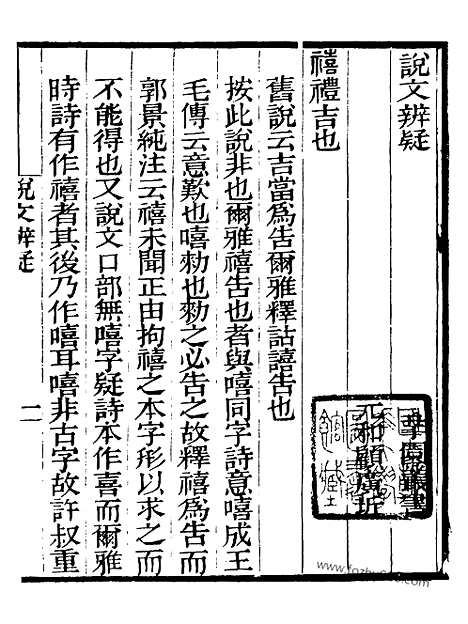 說文辨疑
元和顧廣圻
禧禮吉也
舊說云吉當爲告爾雅釋詁禧告也
按此說非也爾雅禧告也者與嘻同字詩意嘻成王
毛傳云意歎也嘻勑也勑之必告之故釋禧爲告而
郭景純注云禧未聞正由拘禧之本字形以求之而
不能得也又說文口部無嘻字疑詩本作喜而爾雅
時詩有作禧者其後乃作嘻耳嘻非古字故許叔重
說文辨疑
一